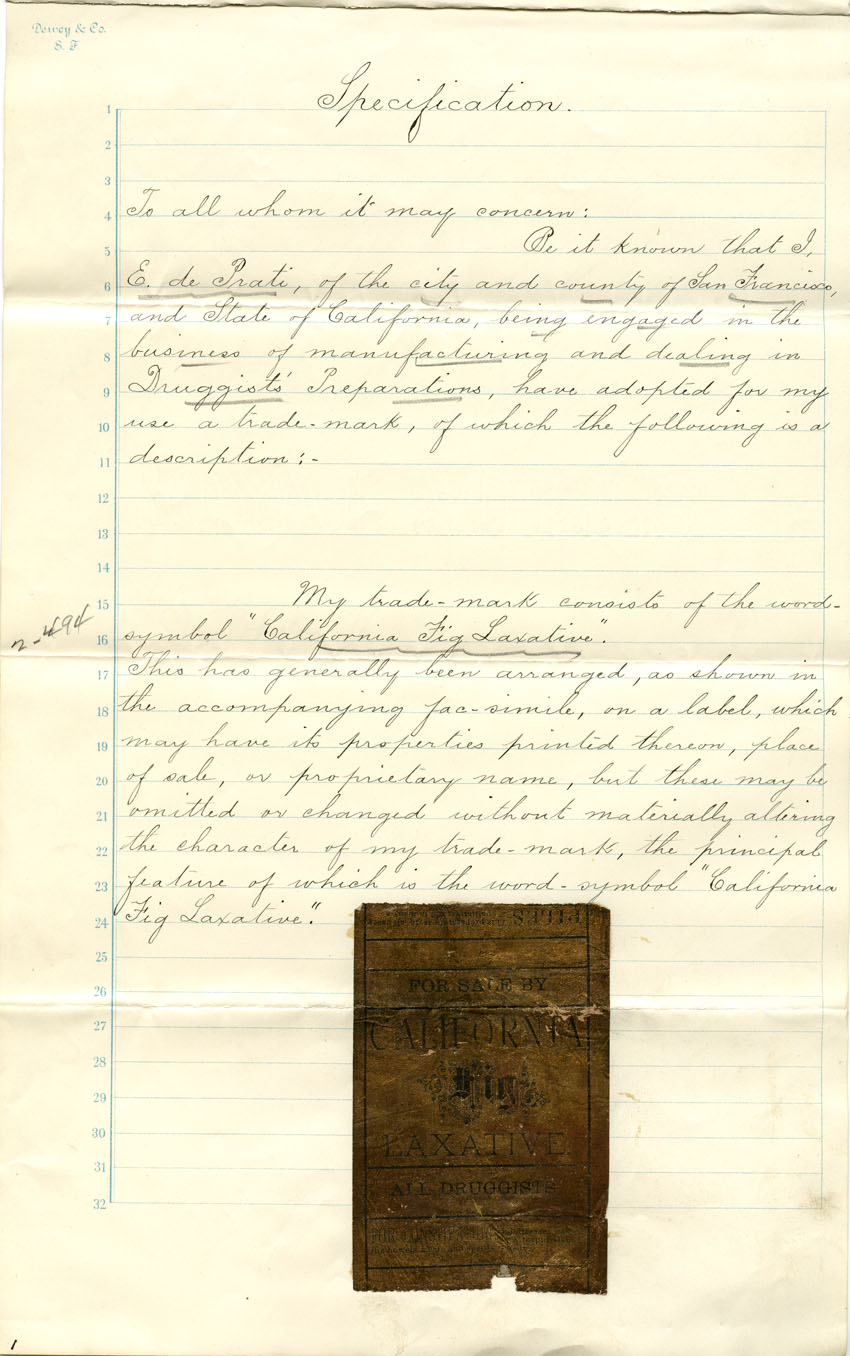 Dewey & Co.
S. F
Specification.
1
2
3
4 To all whom it may concern:
5 Be it known that I,
6 E. de Prati, of the city and county of San Francisco,
7 and State of California, being engaged in the
8 business of manufacturing and dealing in
9 Druggists' Preparations, have adopted for my
10 use a trade-mark, of which the following is a
11 description:-
12
13
14
15 My trade-mark consists of the word-
2-494
16 symbol "California Fig Laxative".
17 This has generally been arranged, as shown in
18 the accompanying fac-simile, on a label, which
19 may have its properties printed thereon, place
20 of sale, or proprietary name, but these may be
21 omitted or changed without materially altering
22 the character of my trade-mark, the principal
23 feature of which is the word-symbol "California
24 Fig Laxative".
25
26
27
28
29
30
31
32
FOR SALE BY
CALIFORNIA
Fig
LAXATIVE
ALL DRUGGISTS
1